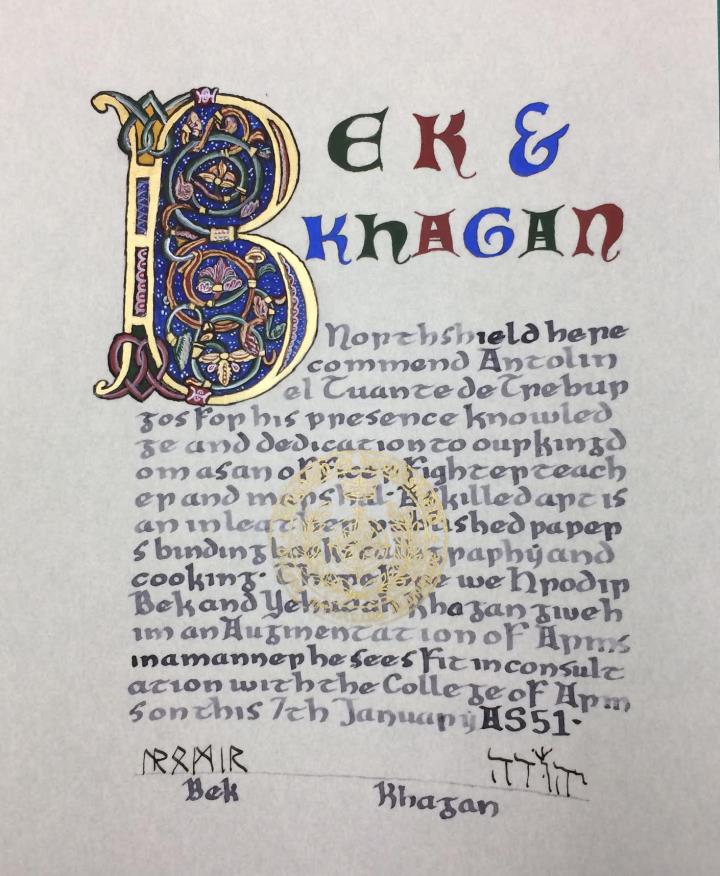 BEK &
KHAGAN
Northshield here
commend Antolin
el Tuante de Trebur
gos for his presence knowled
ge and dedication to our kingd
om as an officer fighter teach
er and marshal· A skilled artis
an in leather published paper
s binding books calligraphy and
cooking· Therefore we Hrodir
Bek and Yehudah Khagan giveh
im an Augmentation of Arms
in a manner he sees fit in consult
ation with the College of Arm
s on this 7th January AS 51·
ᚺᚱᛟᛞᛁᚱ יהודה
Bek Khagan